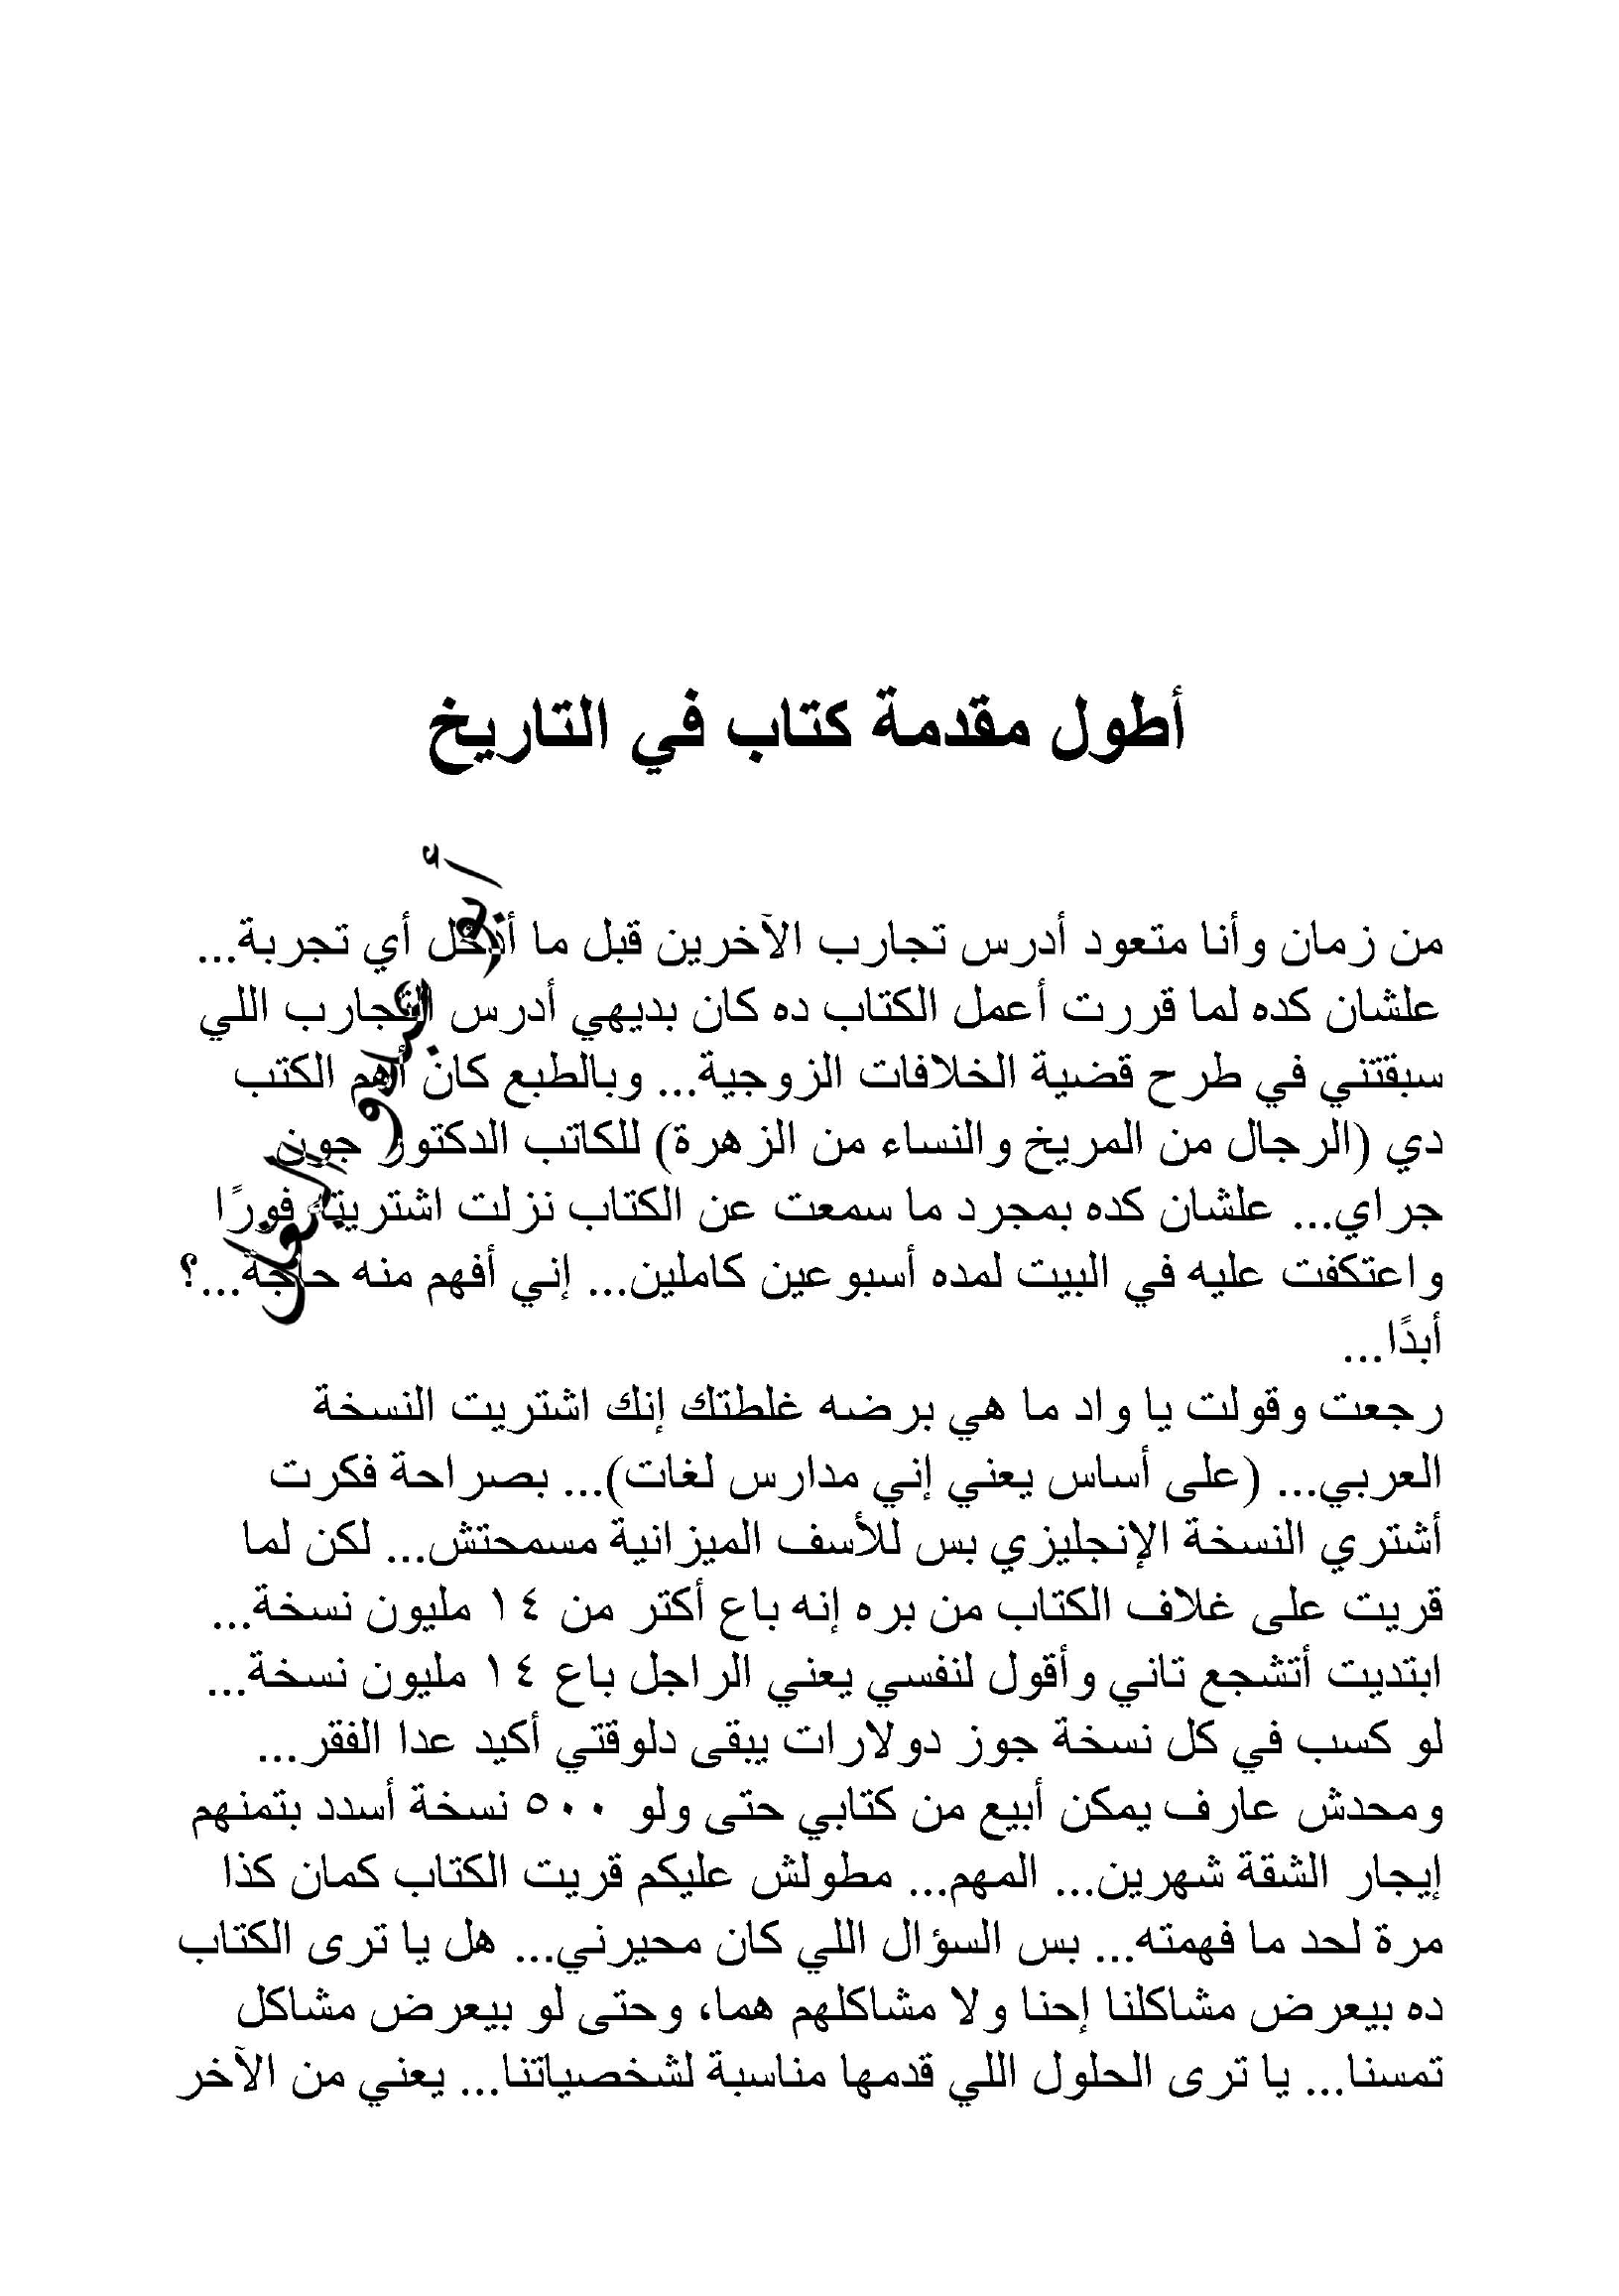 أطول مقدمة كتاب في التاريخ
من زمان وأنا متعود أدرس تجارب الآخرين قبل ما أدخل أي تجربة...
علشان كده لما قررت أعمل الكتاب ده كان بديهي أدرس التجارب اللي
سبقتني في طرح قضية الخلافات الزوجية... وبالطبع كان أهم الكتب
دي (الرجال من المريخ والنساء من الزهرة) للكاتب الدكتور جون
جراي... علشان كده بمجرد ما سمعت عن الكتاب نزلت اشتريته فورًا
واعتكفت عليه في البيت لمده أسبوعين كاملين... إني أفهم منه حاجة...؟
أبدًا...
رجعت وقولت يا واد ما هي برضه غلطتك إنك اشتريت النسخة
العربي... (على أساس يعني إني مدارس لغات)... بصراحة فكرت
أشتري النسخة الإنجليزي بس للأسف الميزانية مسمحتش... لكن لما
قريت على غلاف الكتاب من بره إنه باع أكتر من ١٤ مليون نسخة...
ابتديت أتشجع تاني وأقول لنفسي يعني الراجل باع ١٤ مليون نسخة...
لو كسب في كل نسخة جوز دولارات يبقى دلوقتي أكيد عدا الفقر...
ومحدش عارف يمكن أبيع من كتابي حتى ولو ٥٠٠ نسخة أسدد بتمنهم
إيجار الشقة شهرين... المهم... مطولش عليكم قريت الكتاب كمان كذا
مرة لحد ما فهمته... بس السؤال اللي كان محيرني... هل يا ترى الكتاب
ده بيعرض مشاكلنا إحنا ولا مشاكلهم هما، وحتى لو بيعرض مشاكل
تمسنا... يا ترى الحلول اللي قدمها مناسبة لشخصياتنا... يعني من الآخر